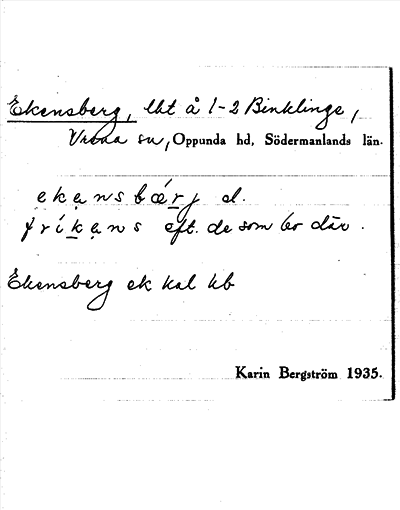 Ekensberg, lht å 1-2 Binklinge,
Vrena sn, Oppunda hd, Södermanlands län.
ekansbærj el.
frikans eft. de som bo där.
Ekensberg ek kal kb
Karin Bergström 1935.